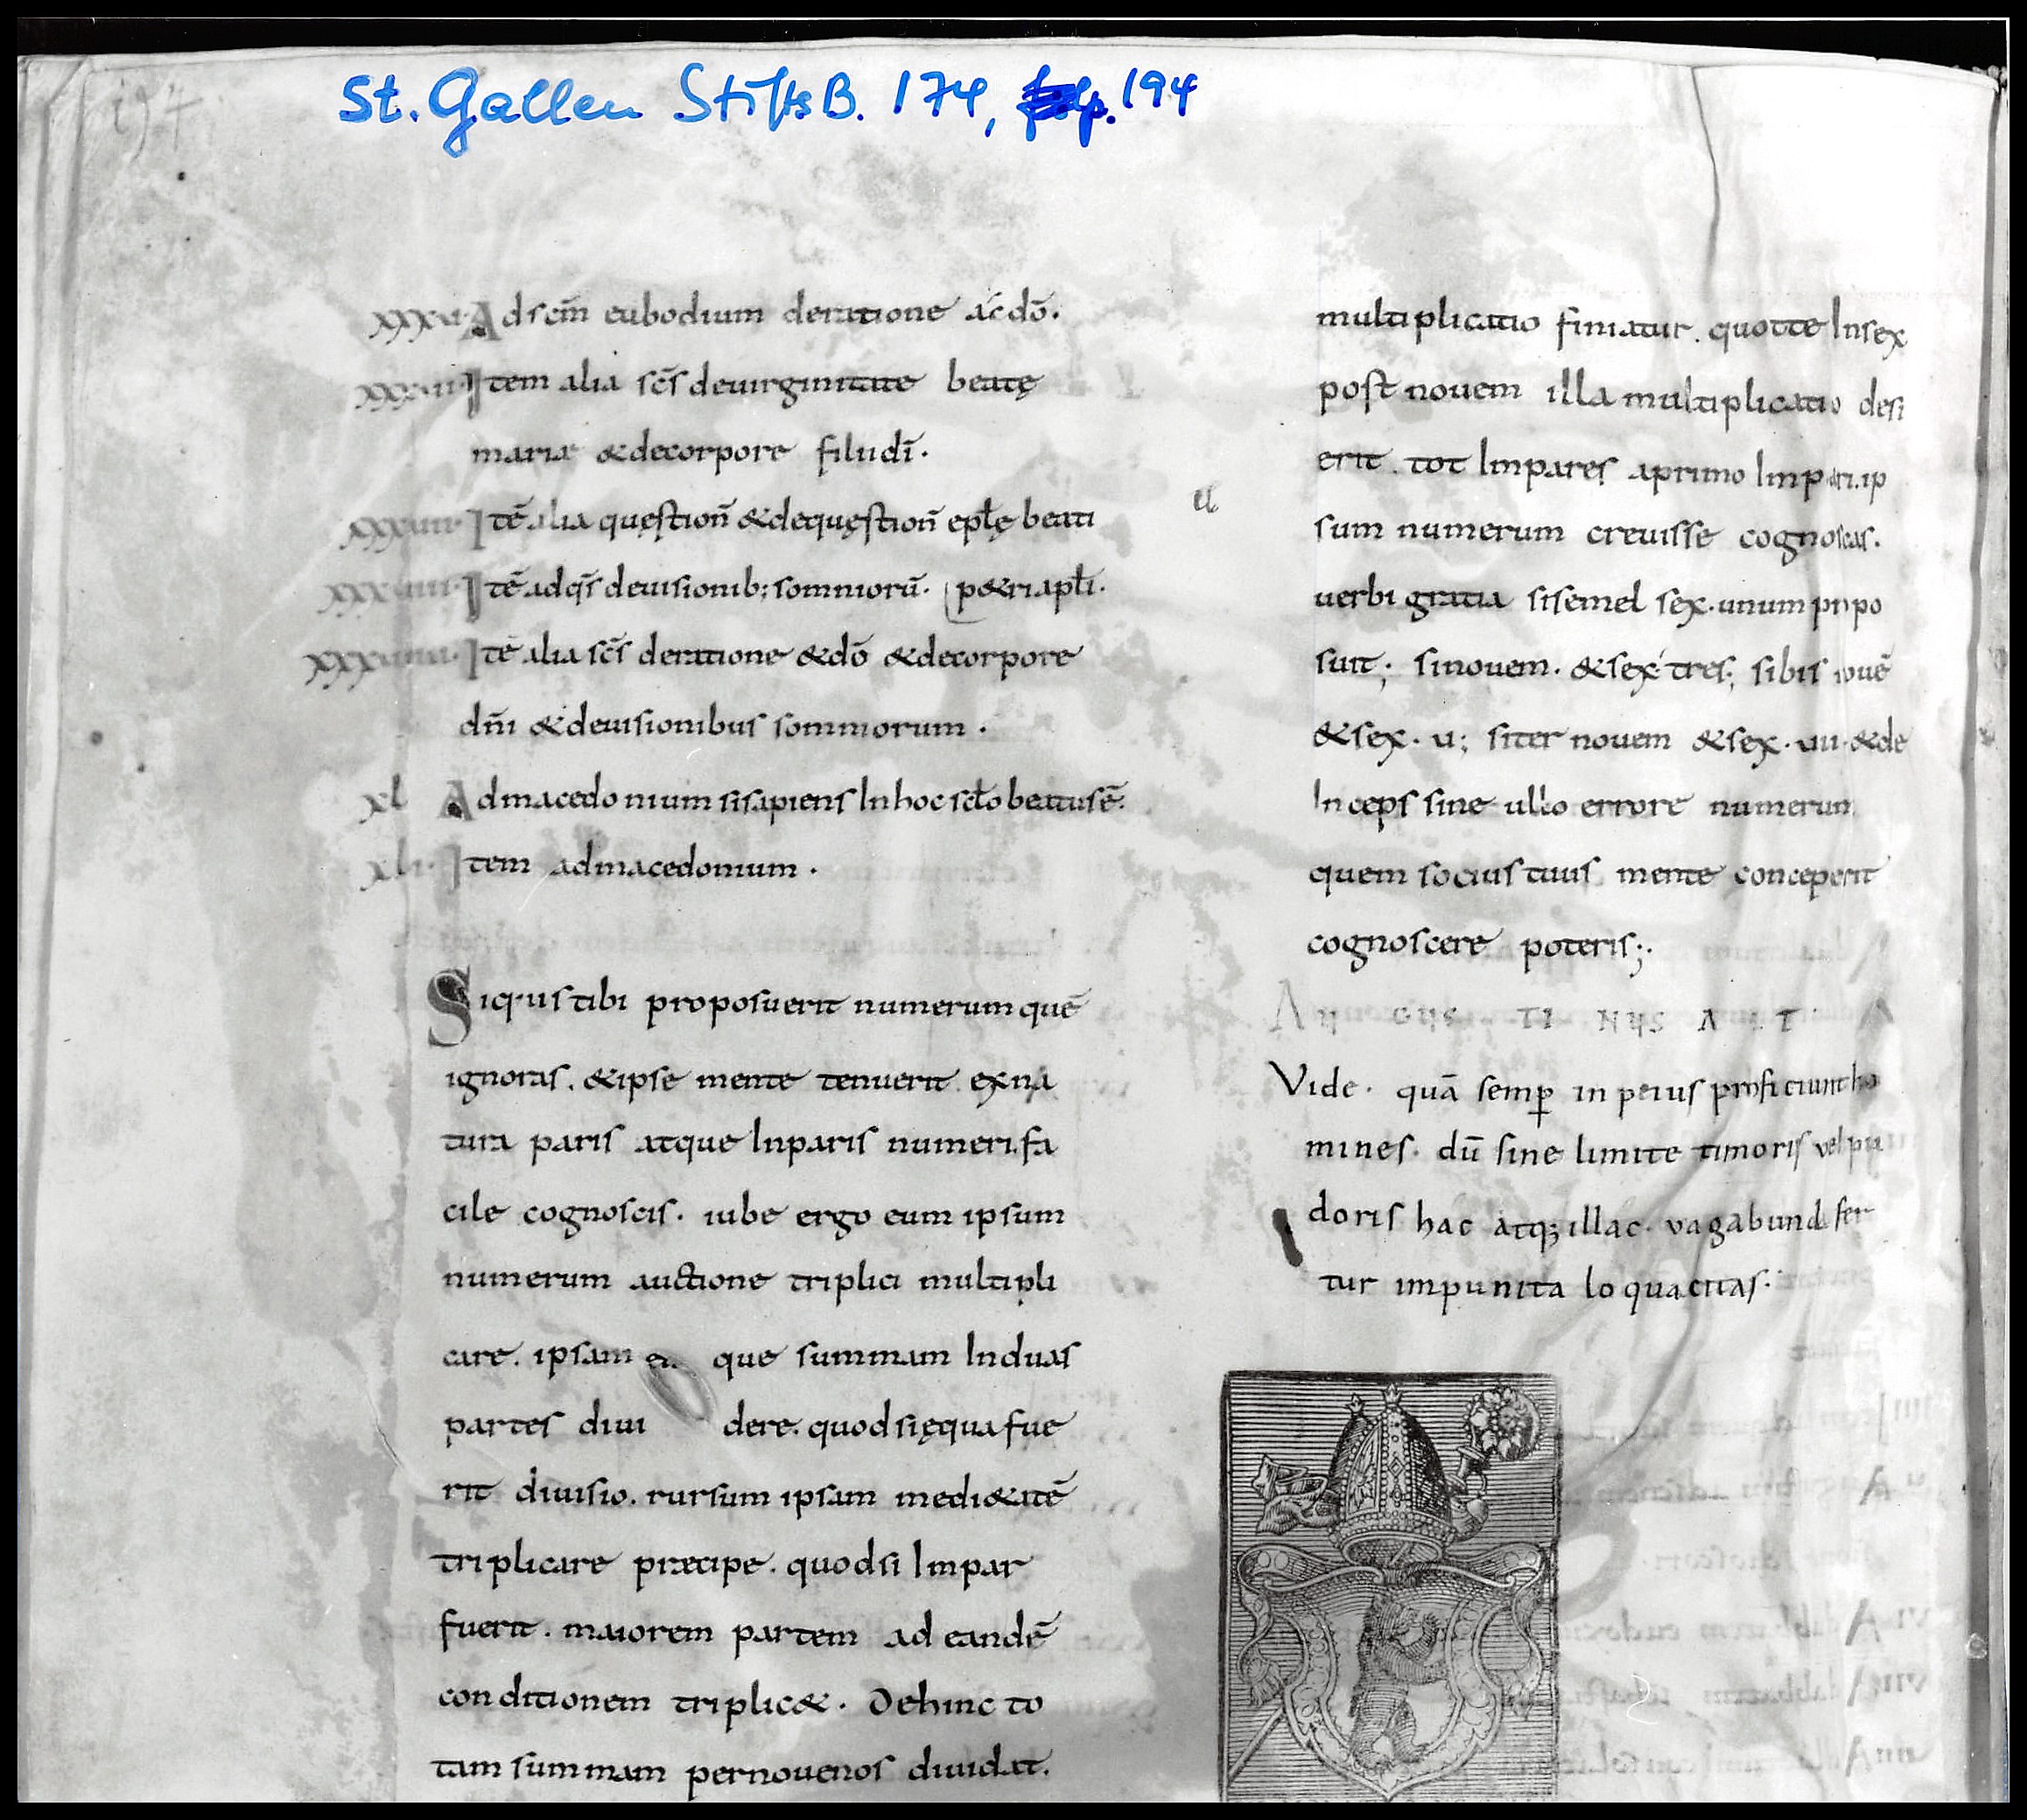 194
St. Gallen StiftsB. 174, p. 194
xxxvi· Ad scm̄ eubodium deratione &dō.
xxxvii· Item alia sc̄s deuirginitate beatę
mariæ &decorpore filii dī·
xxxviii· Itē alia quęstioñ &dequęstioñ epłę beati
xxxviiii· Itē adqs̄ deuisionib; somniorū· p&ri apłi·
xxxviiii· Itē alia sc̄s deratione &dō &decorpore
dn̄i &deuisionibus somniorum·
xl Admacedonium sisapiens Inhoc scło beatus ē·
xli· Item admacedonium·
Siquis tibi proposuerit numerum quē
ignoras. &ipse mente tenuerit. ex na
tura paris atque Inparis numeri. fa
cile cognoscis· iube ergo eum ipsum
numerum auctione triplici multipli
care. ipsam que summam Induas
partes diui dere. quod si ęqua fue
rit diuisio. rursum ipsam medi&atē
triplicare præcipe. quodsi Impar
fuerit. maiorem partem ad eandē
conditionem triplic&· Dehinc to
tam summam pernouenos diuidat.
multiplicatio finiatur. quotte Insex
post nouem illa multiplicatio desi
erit. tot Impares aprimo Impari. ip
sum numerum creuisse cognoscas.
u
uerbi gratia sisemel sex· unum propo
suit; sinouem· &sex· tres; sibis nouē
&sex· u; siter nouem &sex· uii· &de
Inceps sine ullo errore numerum
quem socius tuus mente conceperit
cognoscere poteris;·
AUGUSTINUS AIT
Vide· quā semp̱ in peius proficiunt ho
mines· dū sine limite timoris vel pu
doris hac atq; illac· vagabunda fer
tur impunita loquacitas·